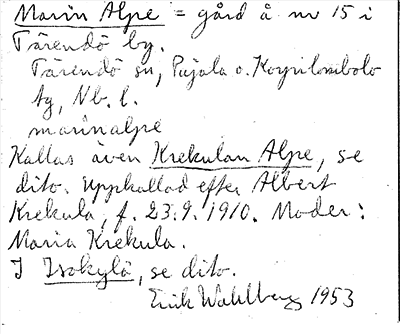 Marin Alpe = gård å nr 15 i
Tärendö by.
Tärendö sn, Pajala o. Korpilombolo
tg, Nb. l.
marinalpe
Kallas även Krekulan Alpe, se
dito. Uppkallad efter Albert
Krekula, f. 23.9.1910. Moder:
Maria Krekula.
I Isokylä, se dito.
Erik Wahlberg 1953